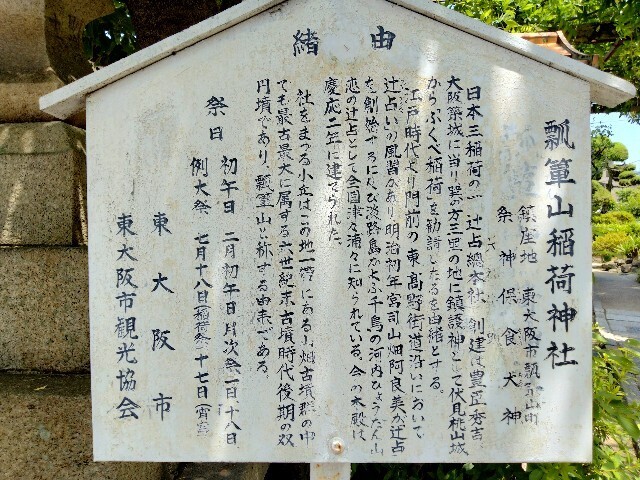 由緒
瓢簞山稲荷神社
鎮座地 東大阪市瓢簞山町
祭神 保食大神
日本三稲荷の一、辻占総本社、創建は豊臣秀吉
大阪築城に当り巽の方三里の地に鎮護神として伏見桃山城
から"ふくべ稲荷"を勧請したるを由緒とする。
江戸時代より門前の東高野街道沿いにおいて
辻占いの風習があり明治初年宮司山畑阿良美が辻占
を創始するに及び淡路島かよふ千鳥の河内ひょうたん山
恋の辻占として全国津々浦々に知られている。今の本殿は
慶応二年に建てられた。
社をまつる小丘はこの地一帯にある山畑古墳群の中
でも最古最大に属する六世紀末古墳時代後期の双
円墳であり、瓢簞山と称する由来である。
祭日 初午日 二月初午日 月次祭 一日 十八日
例大祭 七月十八日(稲荷祭)十七日(宵宮
東大阪市
東大阪市観光協会